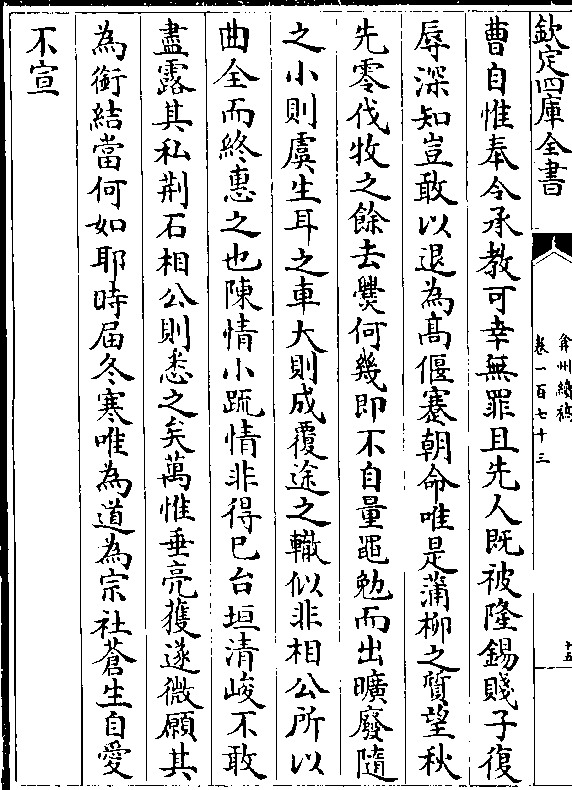 欽定四庫全書
弇州續稿
卷一百七十三
十五
曹自惟奉令承教可幸無罪且先人既被隆錫賤子復
辱深知豈敢以退為髙偃蹇朝命唯是蒲柳之質望秋
先零伐牧之餘去爨何幾即不自量黽勉而出曠廢隨
之小則虞生耳之車大則成覆途之轍似非相公所以
曲全而終惠之也陳情小䟽情非得已台垣清峻不敢
盡露其私荆石相公則悉之矣萬惟垂亮獲遂微願其
為銜結當何如耶時届冬寒唯為道為宗社蒼生自愛
不宣